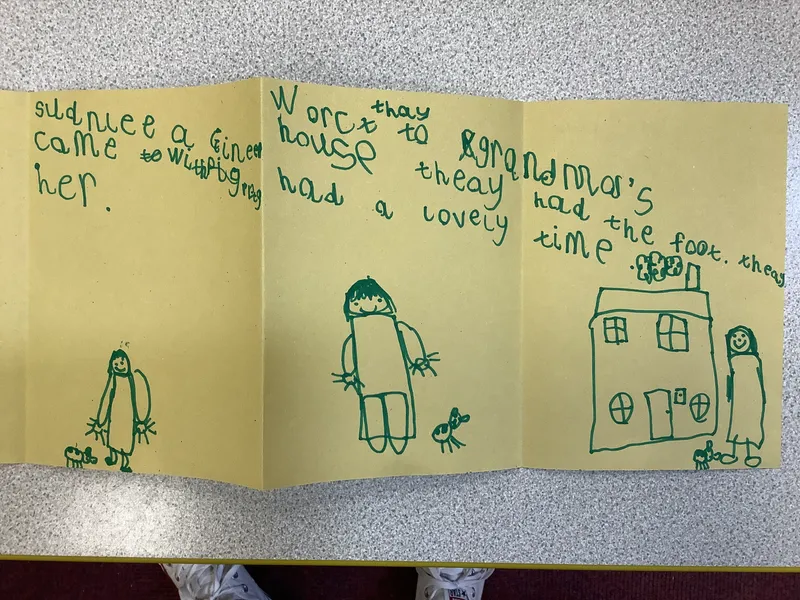 sudnlee a Ginee
came to with pig
her.
thay
Worct to grandmar's
house theay had the foot. theay
had a lovely time.